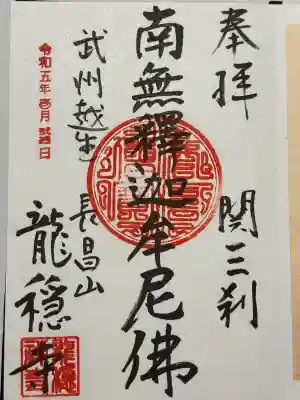 奉拝
関三刹
南無釋迦牟尼佛
武州越生
長昌山
龍穏寺
令和五年壱月弐日